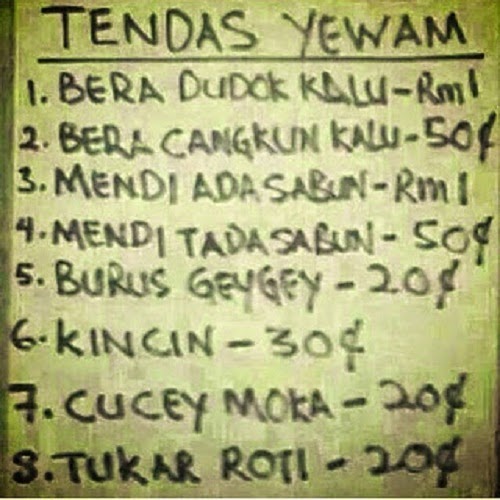 TENDAS YEWAM
1. BERA DUDOK KALU-Rm1
2. BERA CANGKUN KALU-50¢
3. MENDI ADA SABUN-Rm1
4. MENDI TADA SABUN-50¢
5. BURUS GEYGEY-20¢
6. KINCIN-30¢
7. CUCEY MOKA-20¢
8. TUKAR ROTI-20¢